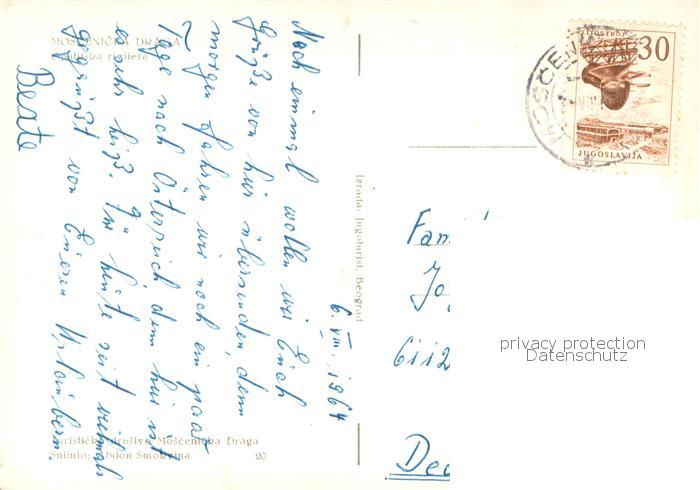 MOŠĆENIČKA DRAGA
Opatijska rivijera
Noch einmal wollen wir Euch
Grüße von hier übersenden, denn
morgen fahren wir noch ein paar
Tage nach Österreich, denn hier ist
es sehr heiß. Für heute seit vielmals
gegrüßt von Eueren Urlaubern.
Beate
6. VIII. 1964
Izrada: Jugoturist, Beograd
Turističko društvo Mošćenička Draga
Snimio: Abdon Smokvina 20
LITOSTROJ
30
JUGOSLAVIJA
MOŠĆEN
VIII
Fam
Jo
6112
Deu
privacy protection
Datenschutz